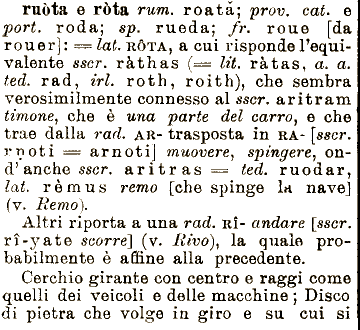 ruòta e ròta rum. roată; prov. cat. e
port. roda; sp. rueda; fr. roue [da
rouer]: = lat. RÒTA, a cui risponde l'equi-
valente sscr. ràthas (= lit. ràtas, a. a.
ted. rad, irl. roth, roith), che sembra
verosimilmente connesso al sscr. aritram
timone, che è una parte del carro, e che
trae dalla rad. AR- trasposta in RA- [sscr.
rṇoti = arnoti] muovere, spingere, on-
d'anche sscr. aritras = ted. ruodar,
lat. rèmus remo [che spinge la nave]
(v. Remo).
Altri riporta a una rad. RÎ- andare [sscr.
rî-yate scorre] (v. Rivo), la quale pro-
babilmente è affine alla precedente.
Cerchio girante con centro e raggi come
quelli dei veicoli e delle macchine; Disco
di pietra che volge in giro e su cui si